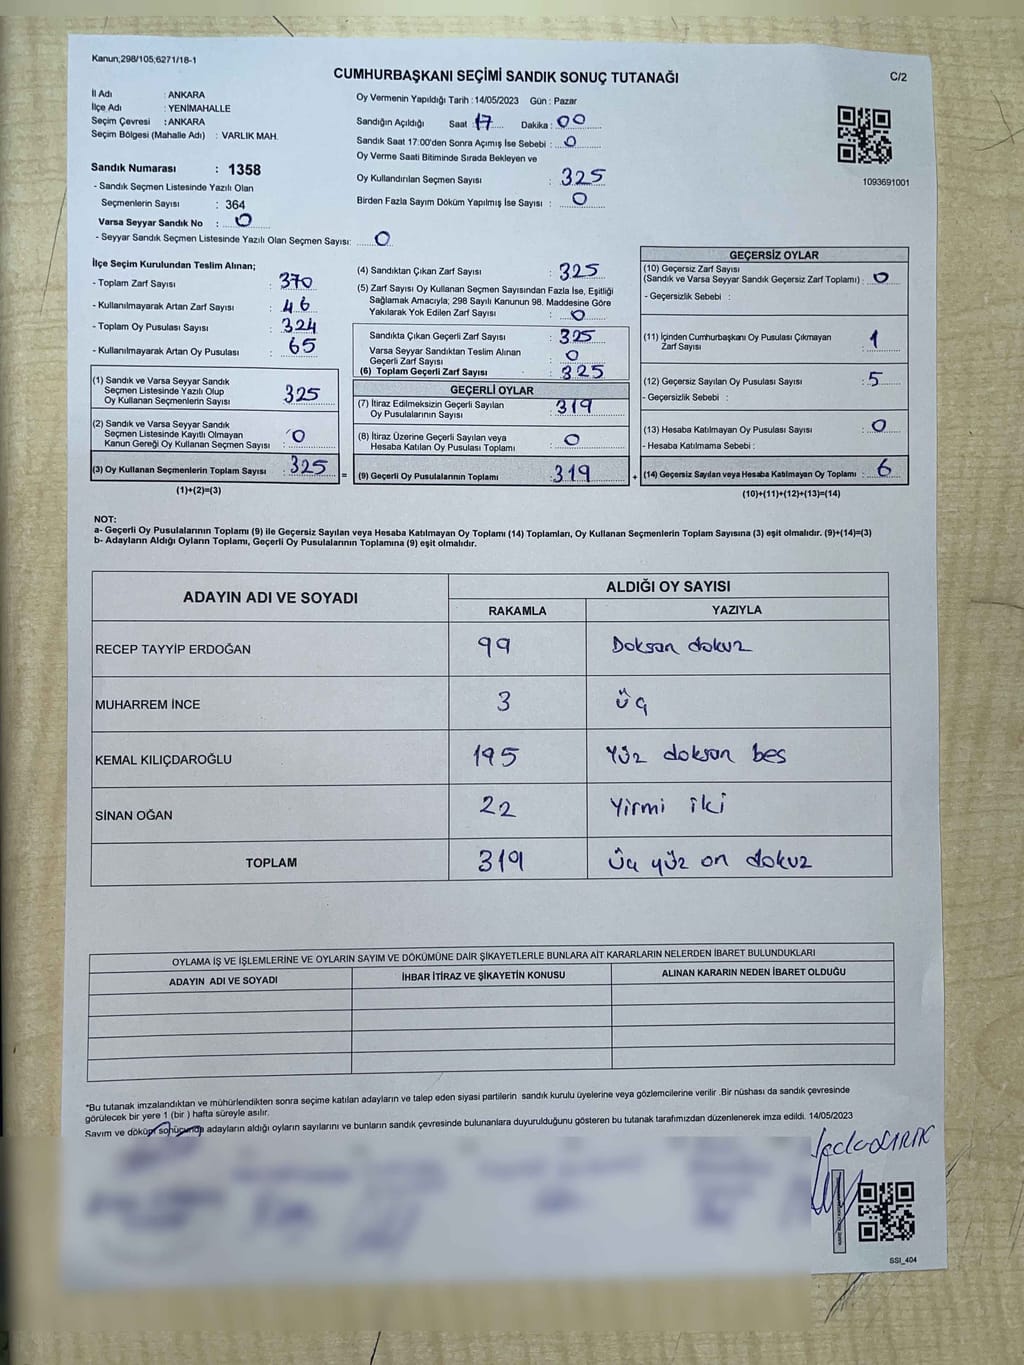 Kanun;298/105;6271/18-1
CUMHURBAŞKANI SEÇİMİ SANDIK SONUÇ TUTANAĞI
C/2
İl Adı : ANKARA
İlçe Adı : YENİMAHALLE
Seçim Çevresi : ANKARA
Seçim Bölgesi (Mahalle Adı) : VARLIK MAH.
Sandık Numarası : 1358
- Sandık Seçmen Listesinde Yazılı Olan
Seçmenlerin Sayısı : 364
Varsa Seyyar Sandık No : 0
- Seyyar Sandık Seçmen Listesinde Yazılı Olan Seçmen Sayısı: 0
Oy Vermenin Yapıldığı Tarih : 14/05/2023 Gün : Pazar
Sandığın Açıldığı Saat : 17 Dakika : 00
Sandık Saat 17:00'den Sonra Açımış İse Sebebi : 0
Oy Verme Saati Bitiminde Sırada Bekleyen ve
Oy Kullandırılan Seçmen Sayısı : 325
Birden Fazla Sayım Döküm Yapılmış İse Sayısı : 0
1093691001
İlçe Seçim Kurulundan Teslim Alınan;
- Toplam Zarf Sayısı : 370
- Kullanılmayarak Artan Zarf Sayısı : 46
- Toplam Oy Pusulası Sayısı : 324
- Kullanılmayarak Artan Oy Pusulası : 65
(1) Sandık ve Varsa Seyyar Sandık
Seçmen Listesinde Yazılı Olup
Oy Kullanan Seçmenlerin Sayısı : 325
(2) Sandık ve Varsa Seyyar Sandık
Seçmen Listesinde Kayıtlı Olmayan
Kanun Gereği Oy Kullanan Seçmen Sayısı : 0
(3) Oy Kullanan Seçmenlerin Toplam Sayısı : 325
(1)+(2)=(3)
(4) Sandıktan Çıkan Zarf Sayısı : 325
(5) Zarf Sayısı Oy Kullanan Seçmen Sayısından Fazla İse, Eşitliği
Sağlamak Amacıyla; 298 Sayılı Kanunun 98. Maddesine Göre
Yakılarak Yok Edilen Zarf Sayısı : 0
Sandıkta Çıkan Geçerli Zarf Sayısı : 325
Varsa Seyyar Sandıktan Teslim Alınan
Geçerli Zarf Sayısı : 0
(6) Toplam Geçerli Zarf Sayısı : 325
GEÇERLİ OYLAR
(7) İtiraz Edilmeksizin Geçerli Sayılan
Oy Pusulalarının Sayısı : 319
(8) İtiraz Üzerine Geçerli Sayılan veya
Hesaba Katılan Oy Pusulası Toplamı : 0
= (9) Geçerli Oy Pusulalarının Toplamı : 319
GEÇERSİZ OYLAR
(10) Geçersiz Zarf Sayısı
(Sandık ve Varsa Seyyar Sandık Geçersiz Zarf Toplamı) : 0
- Geçersizlik Sebebi :
(11) İçinden Cumhurbaşkanı Oy Pusulası Çıkmayan
Zarf Sayısı : 1
(12) Geçersiz Sayılan Oy Pusulası Sayısı : 5
- Geçersizlik Sebebi :
(13) Hesaba Katılmayan Oy Pusulası Sayısı : 0
- Hesaba Katılmama Sebebi :
+ (14) Geçersiz Sayılan veya Hesaba Katılmayan Oy Toplamı : 6
(10)+(11)+(12)+(13)=(14)
NOT:
a- Geçerli Oy Pusulalarının Toplamı (9) ile Geçersiz Sayılan veya Hesaba Katılmayan Oy Toplamı (14) Toplamları, Oy Kullanan Seçmenlerin Toplam Sayısına (3) eşit olmalıdır. (9)+(14)=(3)
b- Adayların Aldığı Oyların Toplamı, Geçerli Oy Pusulalarının Toplamına (9) eşit olmalıdır.
ADAYIN ADI VE SOYADI
ALDIĞI OY SAYISI
RAKAMLA YAZIYLA
RECEP TAYYİP ERDOĞAN 99 Doksan dokuz
MUHARREM İNCE 3 üç
KEMAL KILIÇDAROĞLU 195 Yüz doksan beş
SİNAN OĞAN 22 Yirmi iki
TOPLAM 319 üç yüz on dokuz
OYLAMA İŞ VE İŞLEMLERİNE VE OYLARIN SAYIM VE DÖKÜMÜNE DAİR ŞİKAYETLERLE BUNLARA AİT KARARLARIN NELERDEN İBARET BULUNDUKLARI
ADAYIN ADI VE SOYADI İHBAR İTİRAZ VE ŞİKAYETİN KONUSU ALINAN KARARIN NEDEN İBARET OLDUĞU
*Bu tutanak imzalandıktan ve mühürlendikten sonra seçime katılan adayların ve talep eden siyasi partilerin sandık kurulu üyelerine veya gözlemcilerine verilir .Bir nüshası da sandık çevresinde
görülecek bir yere 1 (bir ) hafta süreyle asılır.
Sayım ve döküm sonucunda adayların aldığı oyların sayılarını ve bunların sandık çevresinde bulunanlara duyurulduğunu gösteren bu tutanak tarafımızdan düzenlenerek imza edildi. 14/05/2023
SSI_404